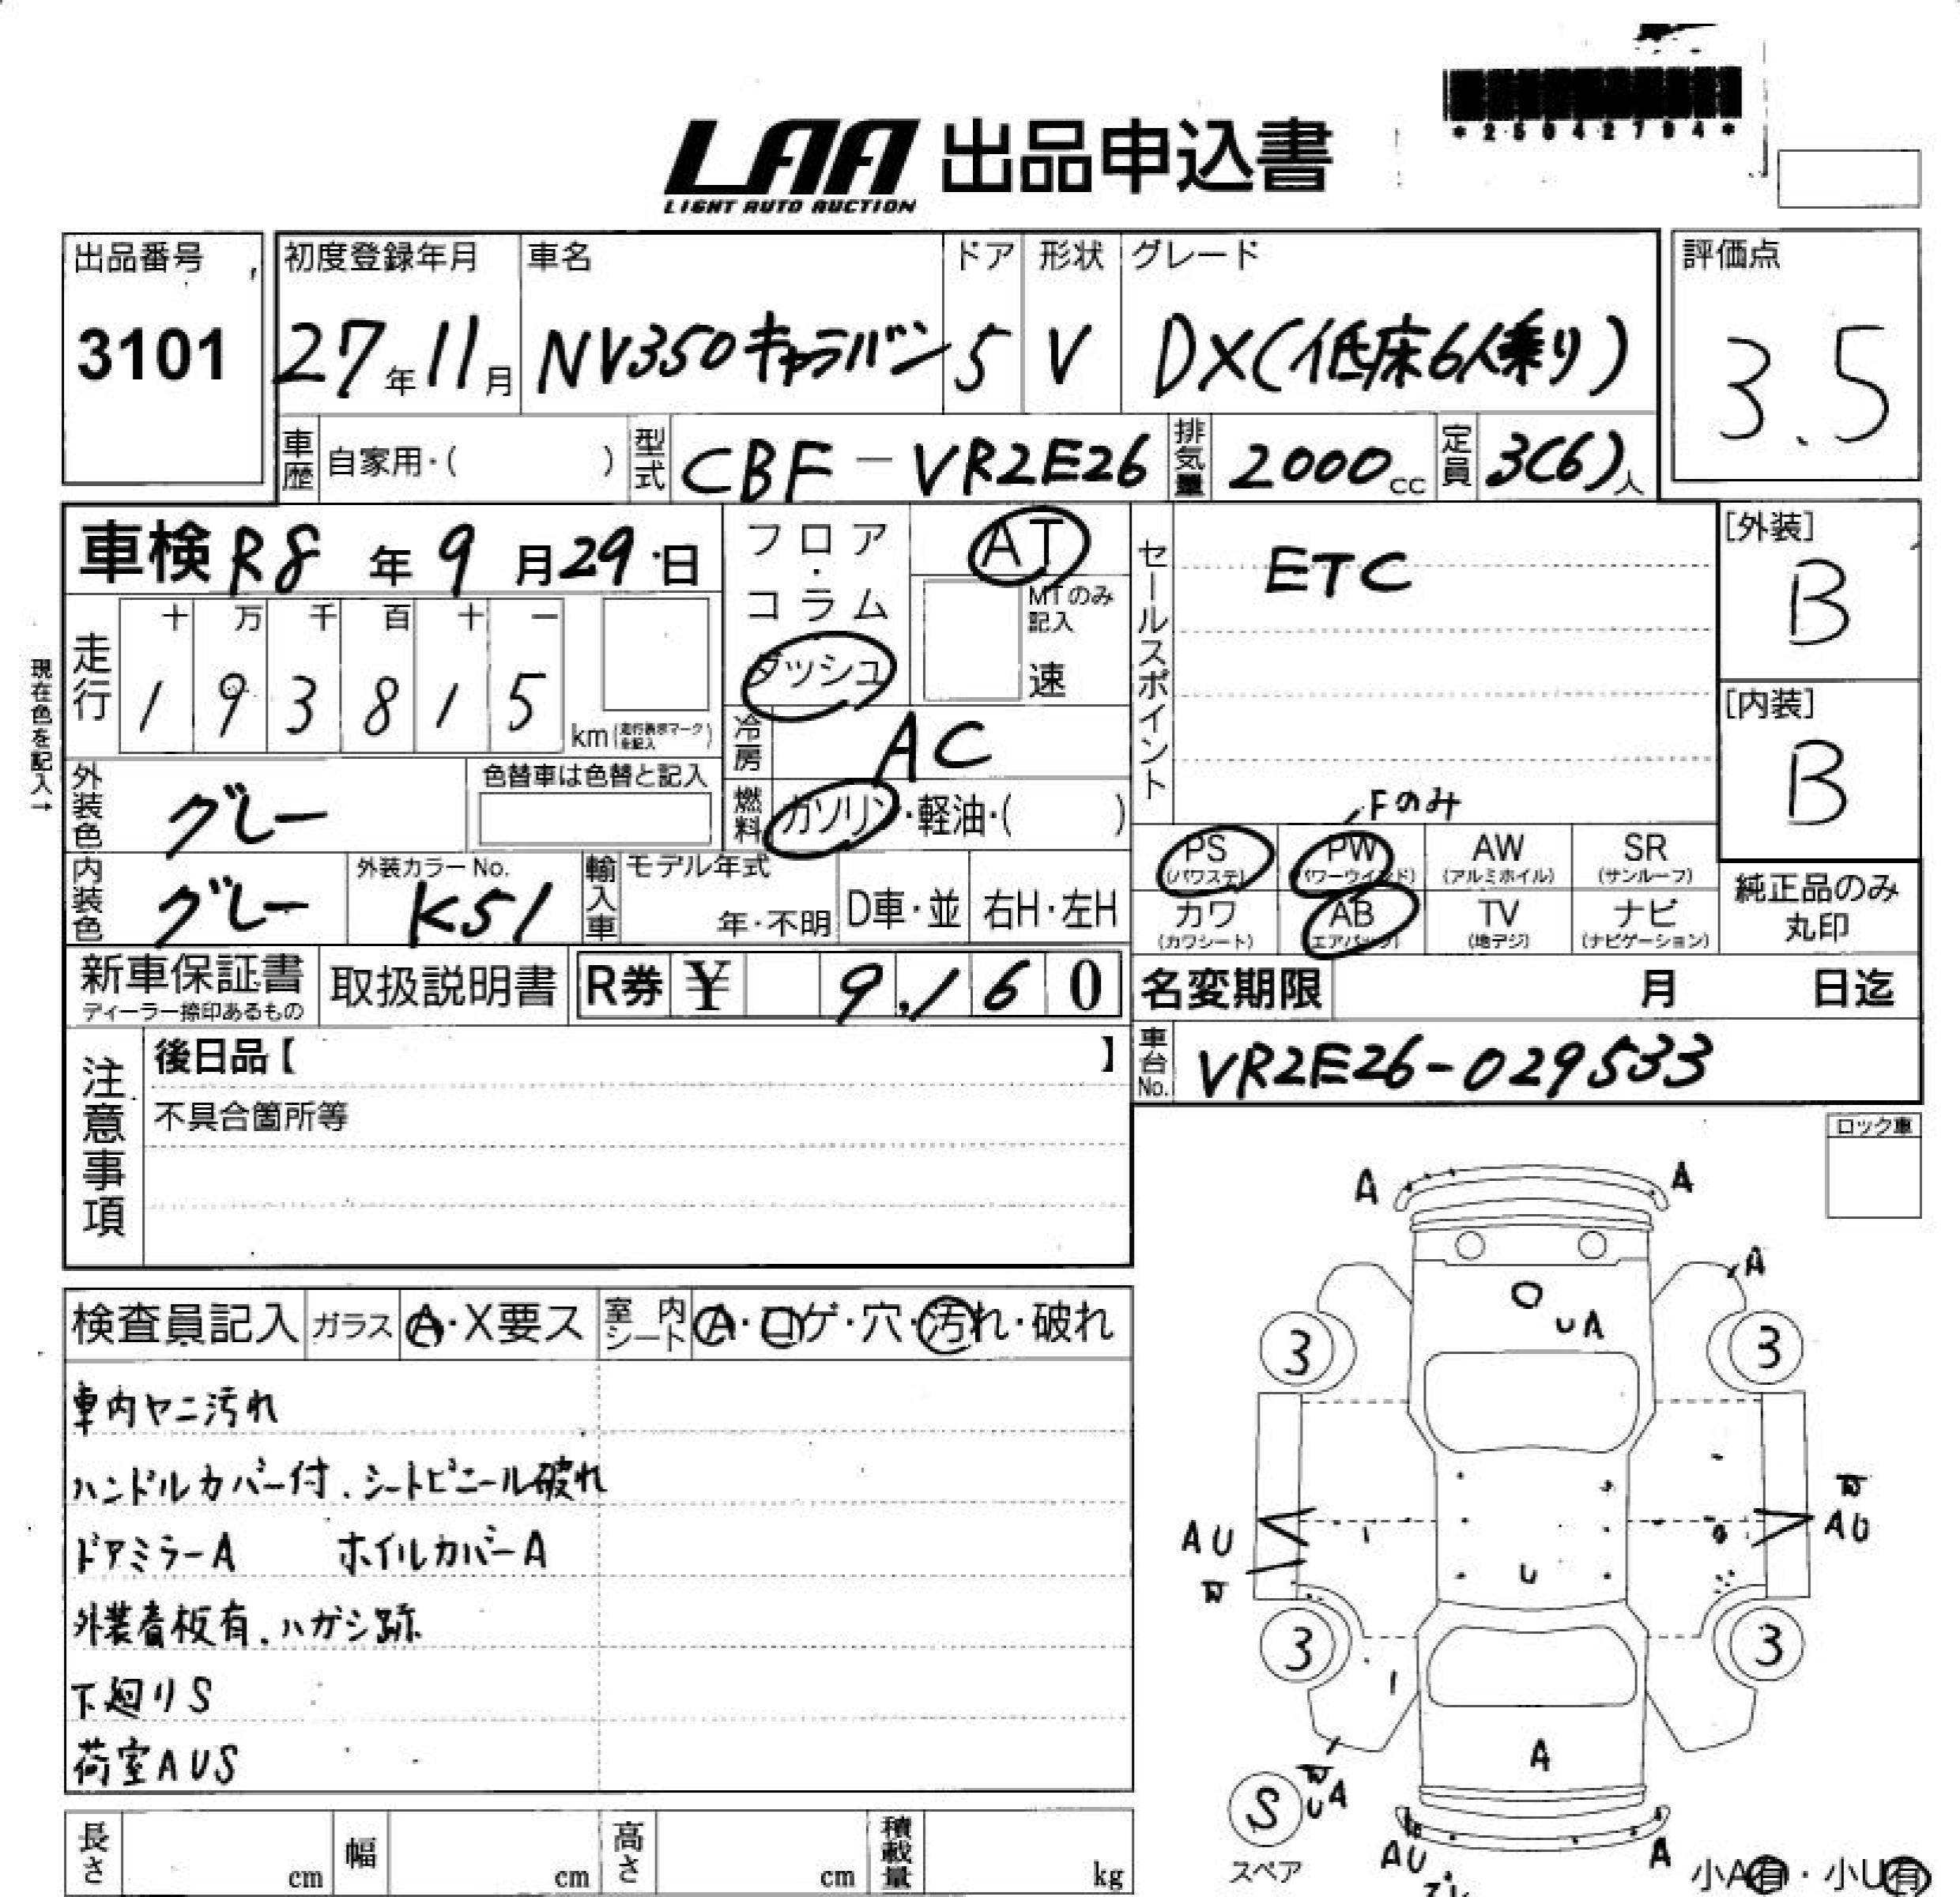 *25042794*
LAA 出品申込書
LIGHT AUTO AUCTION
出品番号 初度登録年月 車名 ドア 形状 グレード 評価点
3101 27年11月 NV350キャラバン 5 V DX(低床6人乗り) 3.5
車歴 自家用・( ) 型式 CBF-VR2E26 排気量 2000cc 定員 3(6)人
車検 R8年9月29日 フロア・コラム AT セールスポイント ETC [外装]
B
ダッシュ MTのみ記入 速
走行 十 万 千 百 十 一
1 9 3 8 1 5 km(走行表示マークを記入) [内装]
B
現在色を記入→
冷房 AC
外装色 グレー 色替車は色替と記入 燃料 ガソリン・軽油・( ) Fのみ
PS (パワステ) PW (パワーウインド) AW (アルミホイル) SR (サンルーフ)
内装色 グレー 外装カラーNo. K51 輸入車 モデル年式 年・不明 D車・並 右H・左H
カワ (カワシート) AB (エアバッグ) TV (地デジ) ナビ (ナビゲーション) 純正品のみ丸印
新車保証書 取扱説明書 R券 ¥ 9,160 名変期限 月 日迄
ディーラー捺印あるもの
注意事項 後日品【 】 車台No. VR2E26-029533
不具合箇所等
ロック車
検査員記入 ガラス A・X要ス 室内シート A・コゲ・穴・汚れ・破れ
車内ヤニ汚れ
ハンドルカバー付.シートビニール破れ
ドアミラーA ホイルカバーA
外装看板有.ハガシ跡
下廻りS
荷室AUS
A A
A
UA
3 3
AU AU
U
3 3
A
S UA
スペア AU A 小A有・小U有
長さ cm 幅 cm 高さ cm 積載量 kg